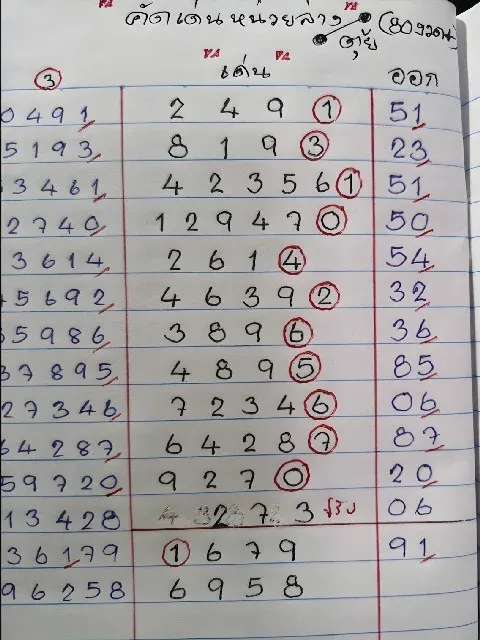 คัดเด่นหน่วยล่าง (80งวด)
③ เด่น ออก
0491 2 4 9 1 51
5193 8 1 9 3 23
3461 4 2 3 5 6 1 51
2740 1 2 9 4 7 0 50
3614 2 6 1 4 54
45692 4 6 3 9 2 32
5986 3 8 9 6 36
37895 4 8 9 5 85
27346 7 2 3 4 6 06
64287 6 4 2 8 7 87
59720 9 2 7 0 20
13428 3 2 7 3 06
36179 1 6 7 9 91
96258 6 9 5 8